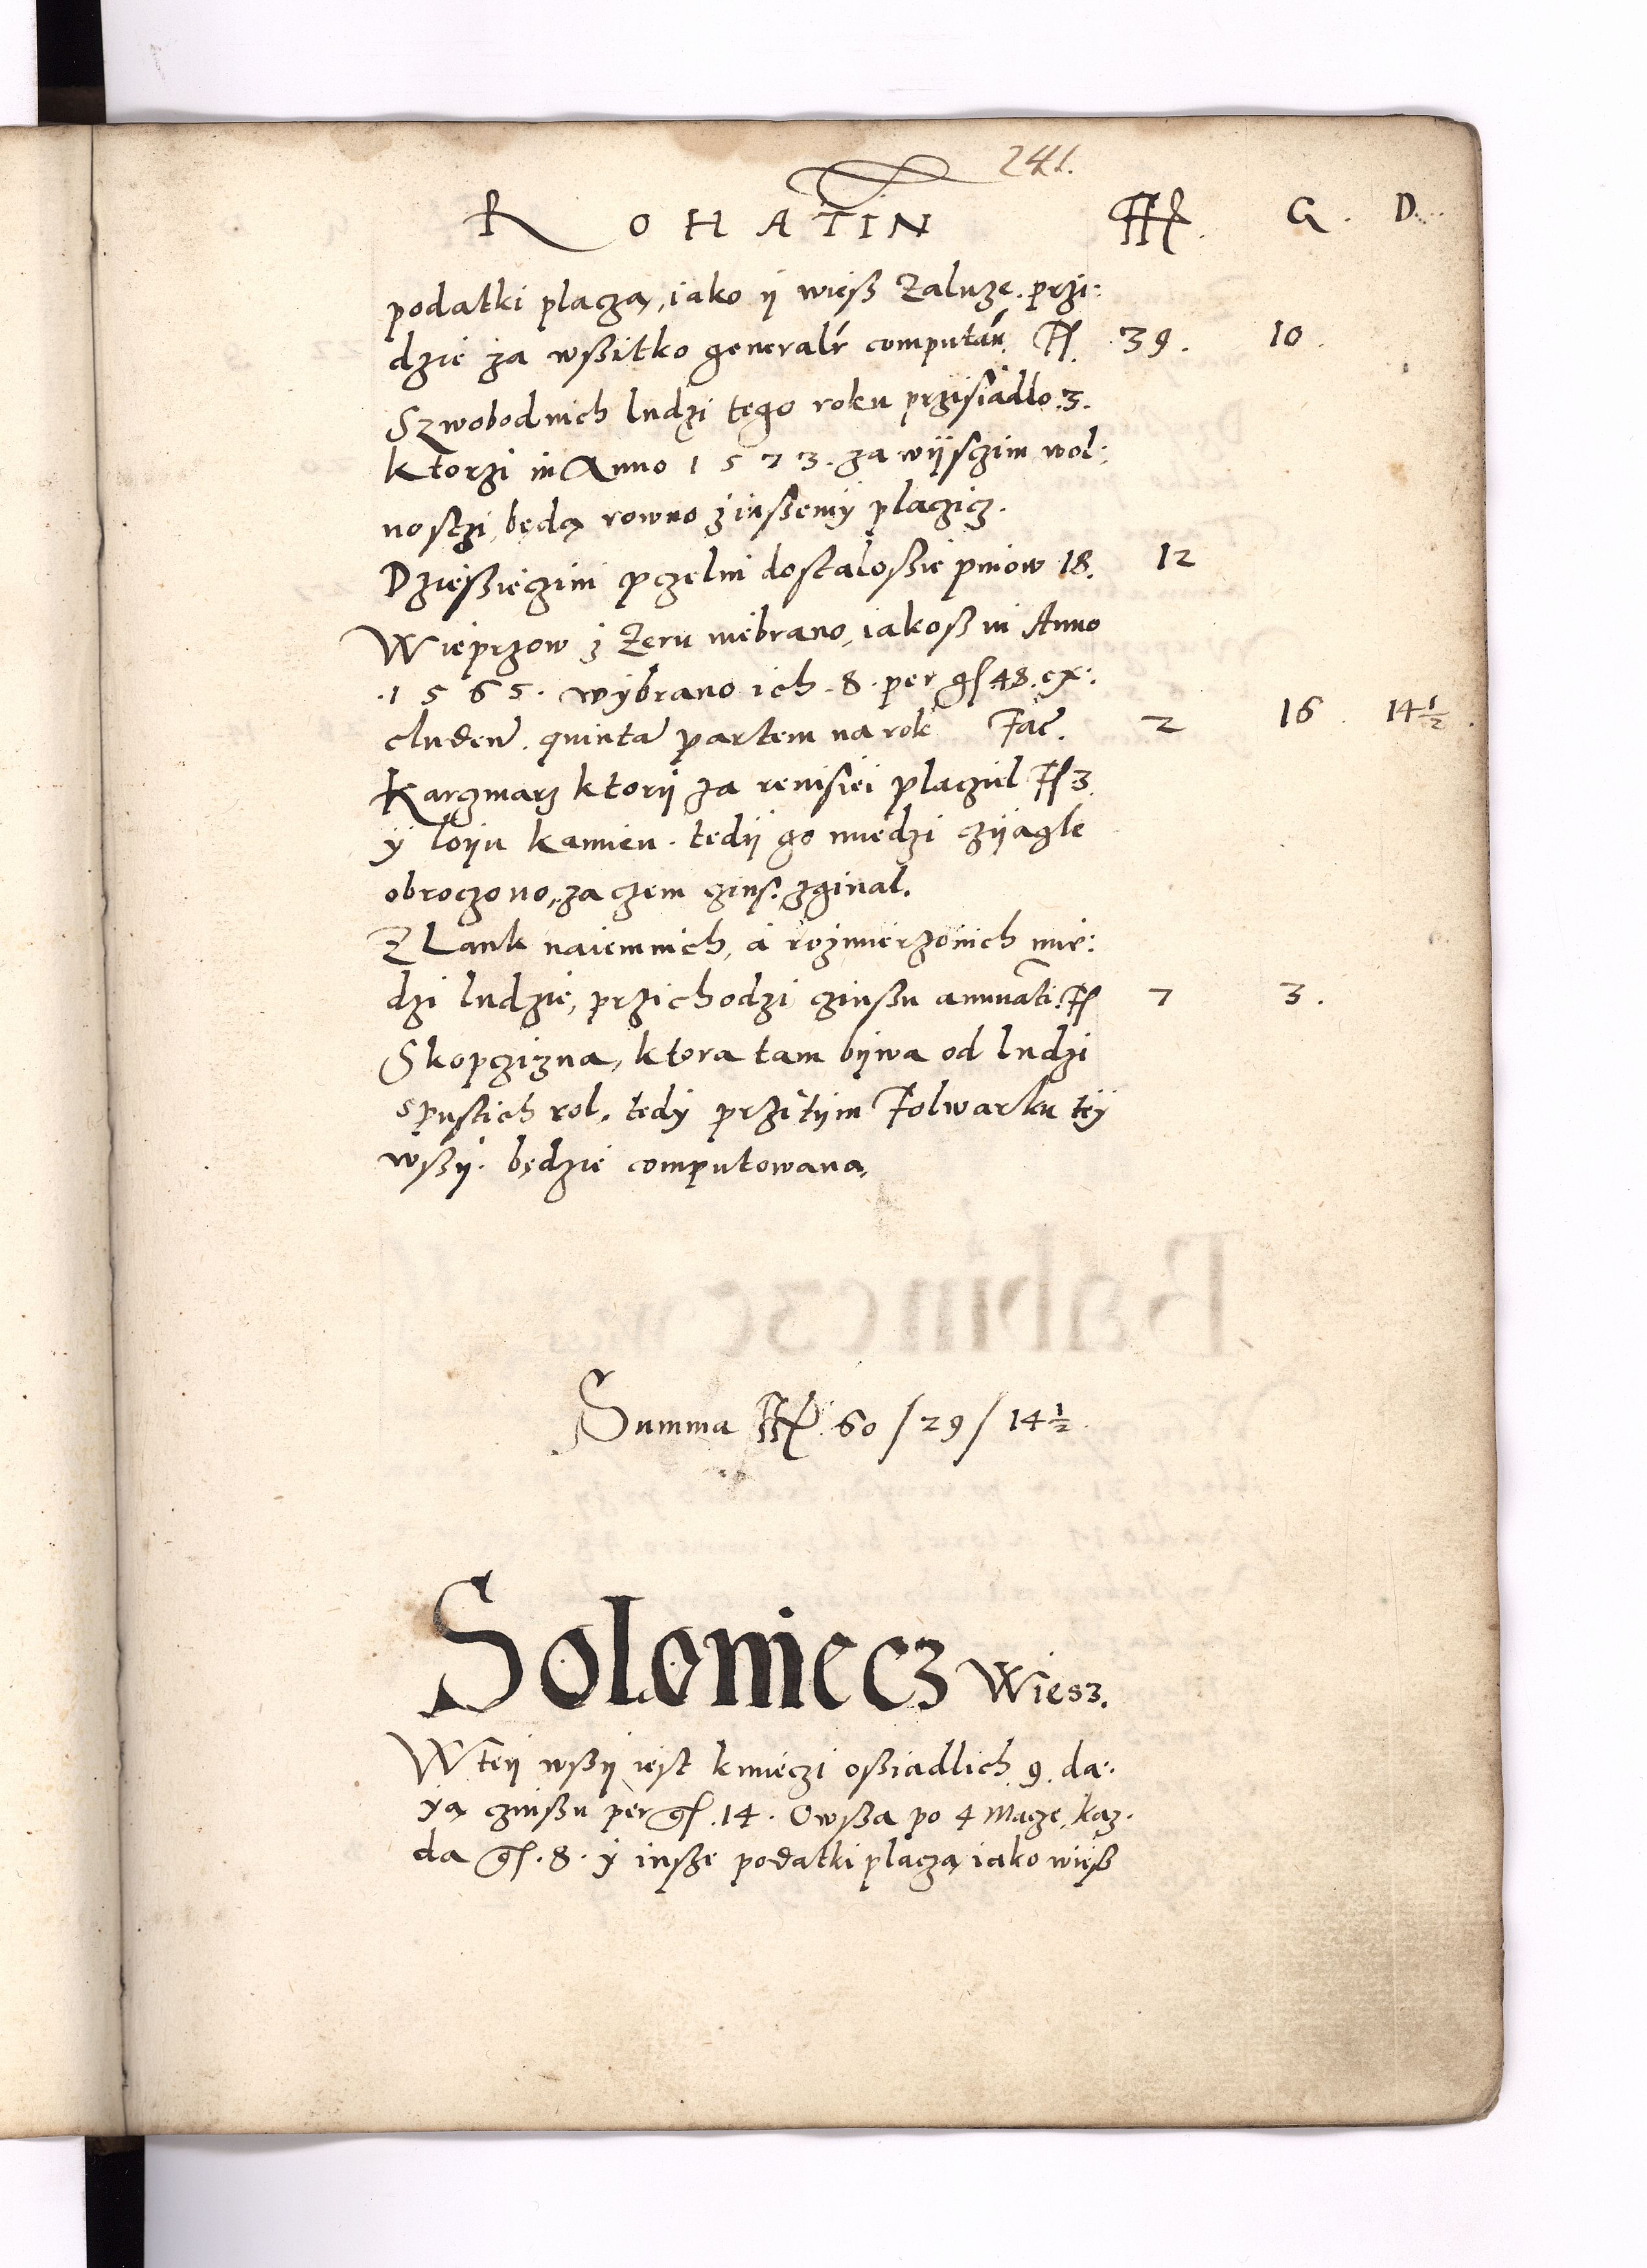 241.
ROHATIN Fl. G. D.
podatki placzą, iako ij wieß Zaluze. przi:
dzie za wßitko generalr computan. Fl. 39. 10.
Szwobodnich ludzi tego roku przisiadlo .3.
ktorzi in Anno 1573. za wijsczim wol:
nosczi, będą rowno zinßemij placzicz.
Dzießieczini pczelni dostaloßie pniow 18. 12
Wieprzow z Zeru niebrano, iakoß in Anno
.1565. wybrano ich .8. per gſ 48. ex:
cluden. quinta partem na rok Fac. 2 16. 14½.
Karczmarz ktorij za revisiei placziel Fl 3.
ÿ loiju kamien. tedij go miedzi czijagle
obroczono, zaczem czins. zginal.
Z Lank naiemnich, a rozmierzonich mie:
dzi ludzie, przichodzi czinßu annuati. Fl 7 3.
Skopczizna, ktora tam bijwa od ludzi
spustich rol. tedÿ przi tijm Folwarku teÿ
wßij. będzie computowana,
Summa Fl. 60/29/14½.
Soloniecz Wiesz.
W teij wßij iest kmieczi oßiadlich .9. da:
ÿą czinßu per gſ .14. Owßa po 4 Macze, kaz.
da gſ. 8. ÿ inße podatki placzą iako wieß